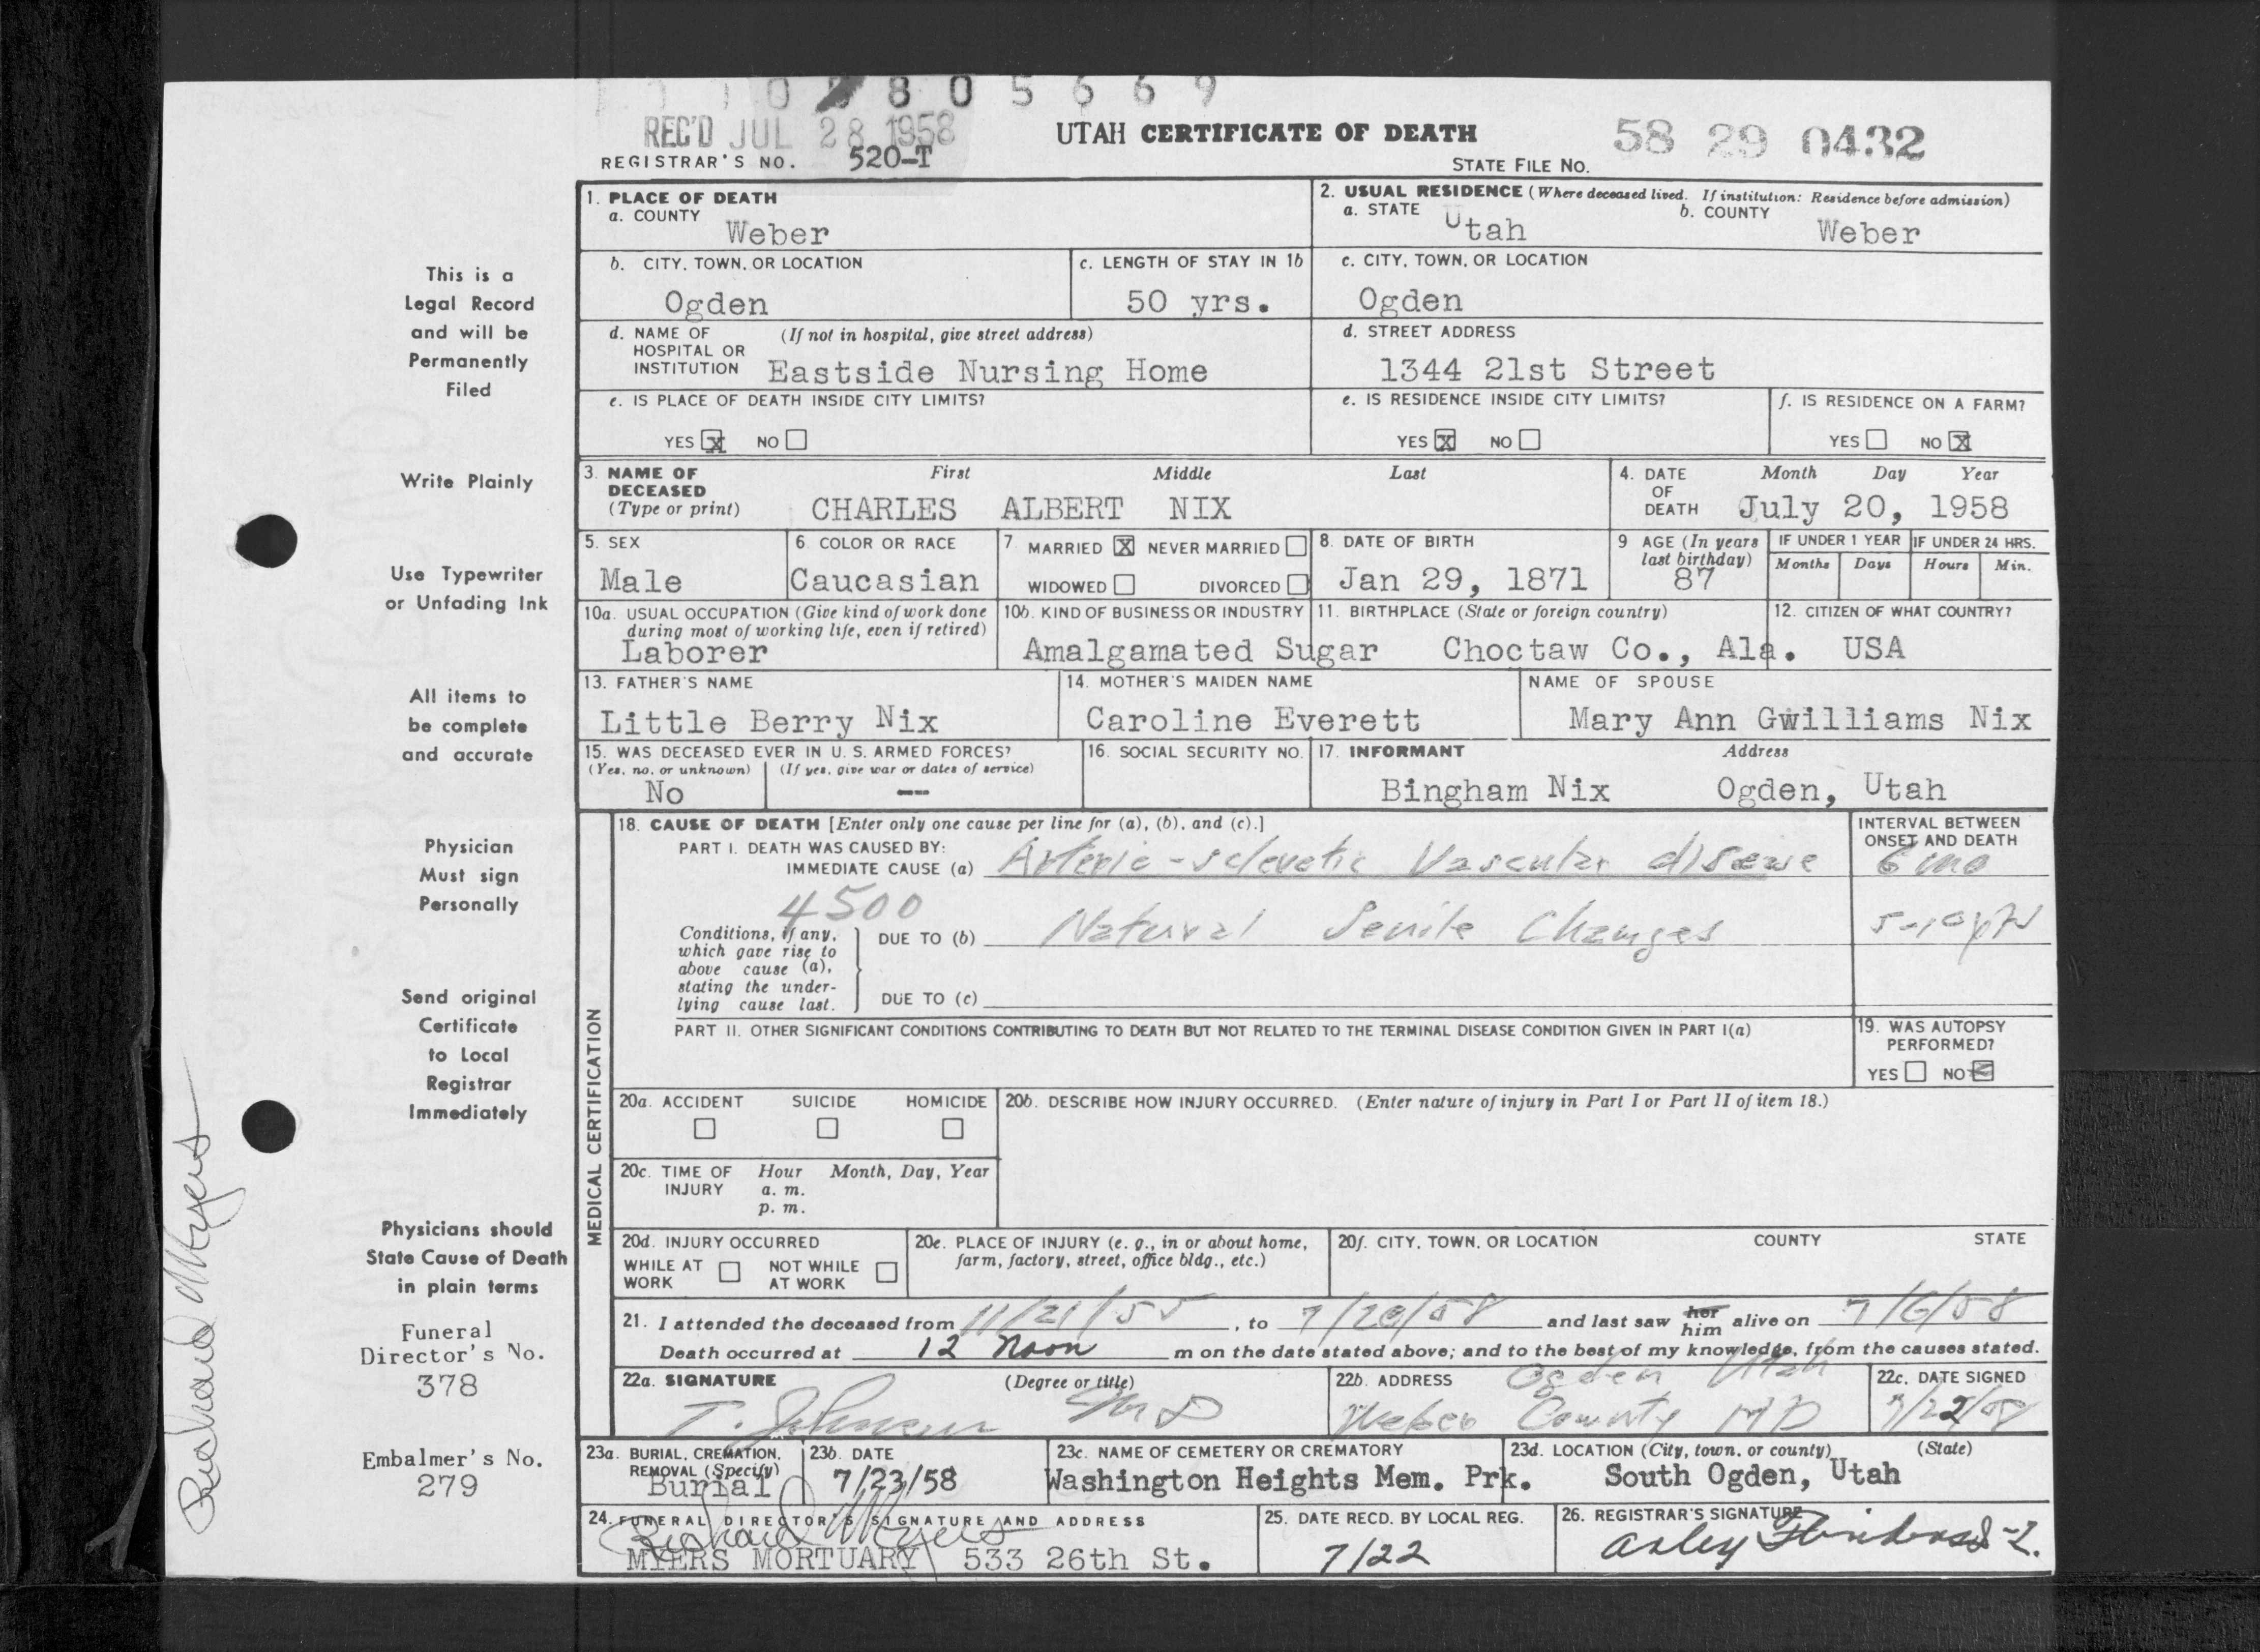 805669
REC'D JUL 28 1958
UTAH CERTIFICATE OF DEATH
58 29 0432
REGISTRAR'S NO. 520-T
STATE FILE NO.
1. PLACE OF DEATH
a. COUNTY
Weber
2. USUAL RESIDENCE (Where deceased lived. If institution: Residence before admission)
a. STATE Utah
b. COUNTY Weber
b. CITY, TOWN, OR LOCATION
Ogden
c. LENGTH OF STAY IN 1b
50 yrs.
c. CITY, TOWN, OR LOCATION
Ogden
d. NAME OF HOSPITAL OR INSTITUTION (If not in hospital, give street address)
Eastside Nursing Home
d. STREET ADDRESS
1344 21st Street
e. IS PLACE OF DEATH INSIDE CITY LIMITS?
YES X NO
e. IS RESIDENCE INSIDE CITY LIMITS?
YES X NO
f. IS RESIDENCE ON A FARM?
YES NO X
3. NAME OF DECEASED (Type or print)
First Middle Last
CHARLES ALBERT NIX
4. DATE OF DEATH
Month Day Year
July 20, 1958
5. SEX
Male
6. COLOR OR RACE
Caucasian
7. MARRIED X NEVER MARRIED
WIDOWED DIVORCED
8. DATE OF BIRTH
Jan 29, 1871
9 AGE (In years last birthday)
87
IF UNDER 1 YEAR
Months Days
IF UNDER 24 HRS.
Hours Min.
10a. USUAL OCCUPATION (Give kind of work done during most of working life, even if retired)
Laborer
10b. KIND OF BUSINESS OR INDUSTRY
Amalgamated Sugar
11. BIRTHPLACE (State or foreign country)
Choctaw Co., Ala.
12. CITIZEN OF WHAT COUNTRY?
USA
13. FATHER'S NAME
Little Berry Nix
14. MOTHER'S MAIDEN NAME
Caroline Everett
NAME OF SPOUSE
Mary Ann Gwilliams Nix
15. WAS DECEASED EVER IN U. S. ARMED FORCES?
(Yes, no, or unknown) (If yes, give war or dates of service)
No —
16. SOCIAL SECURITY NO.
17. INFORMANT Address
Bingham Nix Ogden, Utah
MEDICAL CERTIFICATION
18. CAUSE OF DEATH [Enter only one cause per line for (a), (b), and (c).]
PART I. DEATH WAS CAUSED BY:
IMMEDIATE CAUSE (a) Arterio-sclerotic Vascular disease
INTERVAL BETWEEN ONSET AND DEATH
6 mo
4500
Conditions, if any, which gave rise to above cause (a), stating the underlying cause last.
DUE TO (b) Natural Senile Changes
5-10 yrs
DUE TO (c)
PART II. OTHER SIGNIFICANT CONDITIONS CONTRIBUTING TO DEATH BUT NOT RELATED TO THE TERMINAL DISEASE CONDITION GIVEN IN PART I(a)
19. WAS AUTOPSY PERFORMED?
YES NO
20a. ACCIDENT SUICIDE HOMICIDE
20b. DESCRIBE HOW INJURY OCCURRED. (Enter nature of injury in Part I or Part II of item 18.)
20c. TIME OF INJURY
Hour Month, Day, Year
a. m.
p. m.
20d. INJURY OCCURRED
WHILE AT WORK NOT WHILE AT WORK
20e. PLACE OF INJURY (e. g., in or about home, farm, factory, street, office bldg., etc.)
20f. CITY, TOWN, OR LOCATION COUNTY STATE
21. I attended the deceased from 11/21/55, to 7/20/58 and last saw her him alive on 7/6/58
Death occurred at 12 Noon m on the date stated above; and to the best of my knowledge, from the causes stated.
22a. SIGNATURE (Degree or title)
T. Johnson MD
22b. ADDRESS
Ogden Utah
Weber County MD
22c. DATE SIGNED
7/22/58
23a. BURIAL, CREMATION, REMOVAL (Specify)
Burial
23b. DATE
7/23/58
23c. NAME OF CEMETERY OR CREMATORY
Washington Heights Mem. Prk.
23d. LOCATION (City, town, or county) (State)
South Ogden, Utah
24. FUNERAL DIRECTOR'S SIGNATURE AND ADDRESS
Richard Myers
MYERS MORTUARY 533 26th St.
25. DATE RECD. BY LOCAL REG.
7/22
26. REGISTRAR'S SIGNATURE
This is a
Legal Record
and will be
Permanently
Filed
Write Plainly
Use Typewriter
or Unfading Ink
All items to
be complete
and accurate
Physician
Must sign
Personally
Send original
Certificate
to Local
Registrar
Immediately
Physicians should
State Cause of Death
in plain terms
Funeral
Director's No.
378
Embalmer's No.
279
Richard Myers